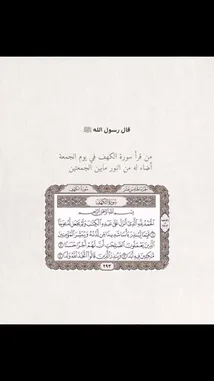 قال رسول الله ﷺ
من قرأ سورة الكهف في يوم الجمعة
أضاء له من النور مابين الجمعتين
سورة الكهف
سورة الكهف
بسم الله الرحمن الرحيم
الحمد لله الذي أنزل على عبده الكتب ولم يجعل له عوجا
قيما لينذر بأسا شديدا من لدنه ويبشر المؤمنين
الذين يعملون الصلحت أن لهم أجرا حسنا
مكثين فيه أبدا وينذر الذين قالوا اتخذ الله ولدا
٢٩٣